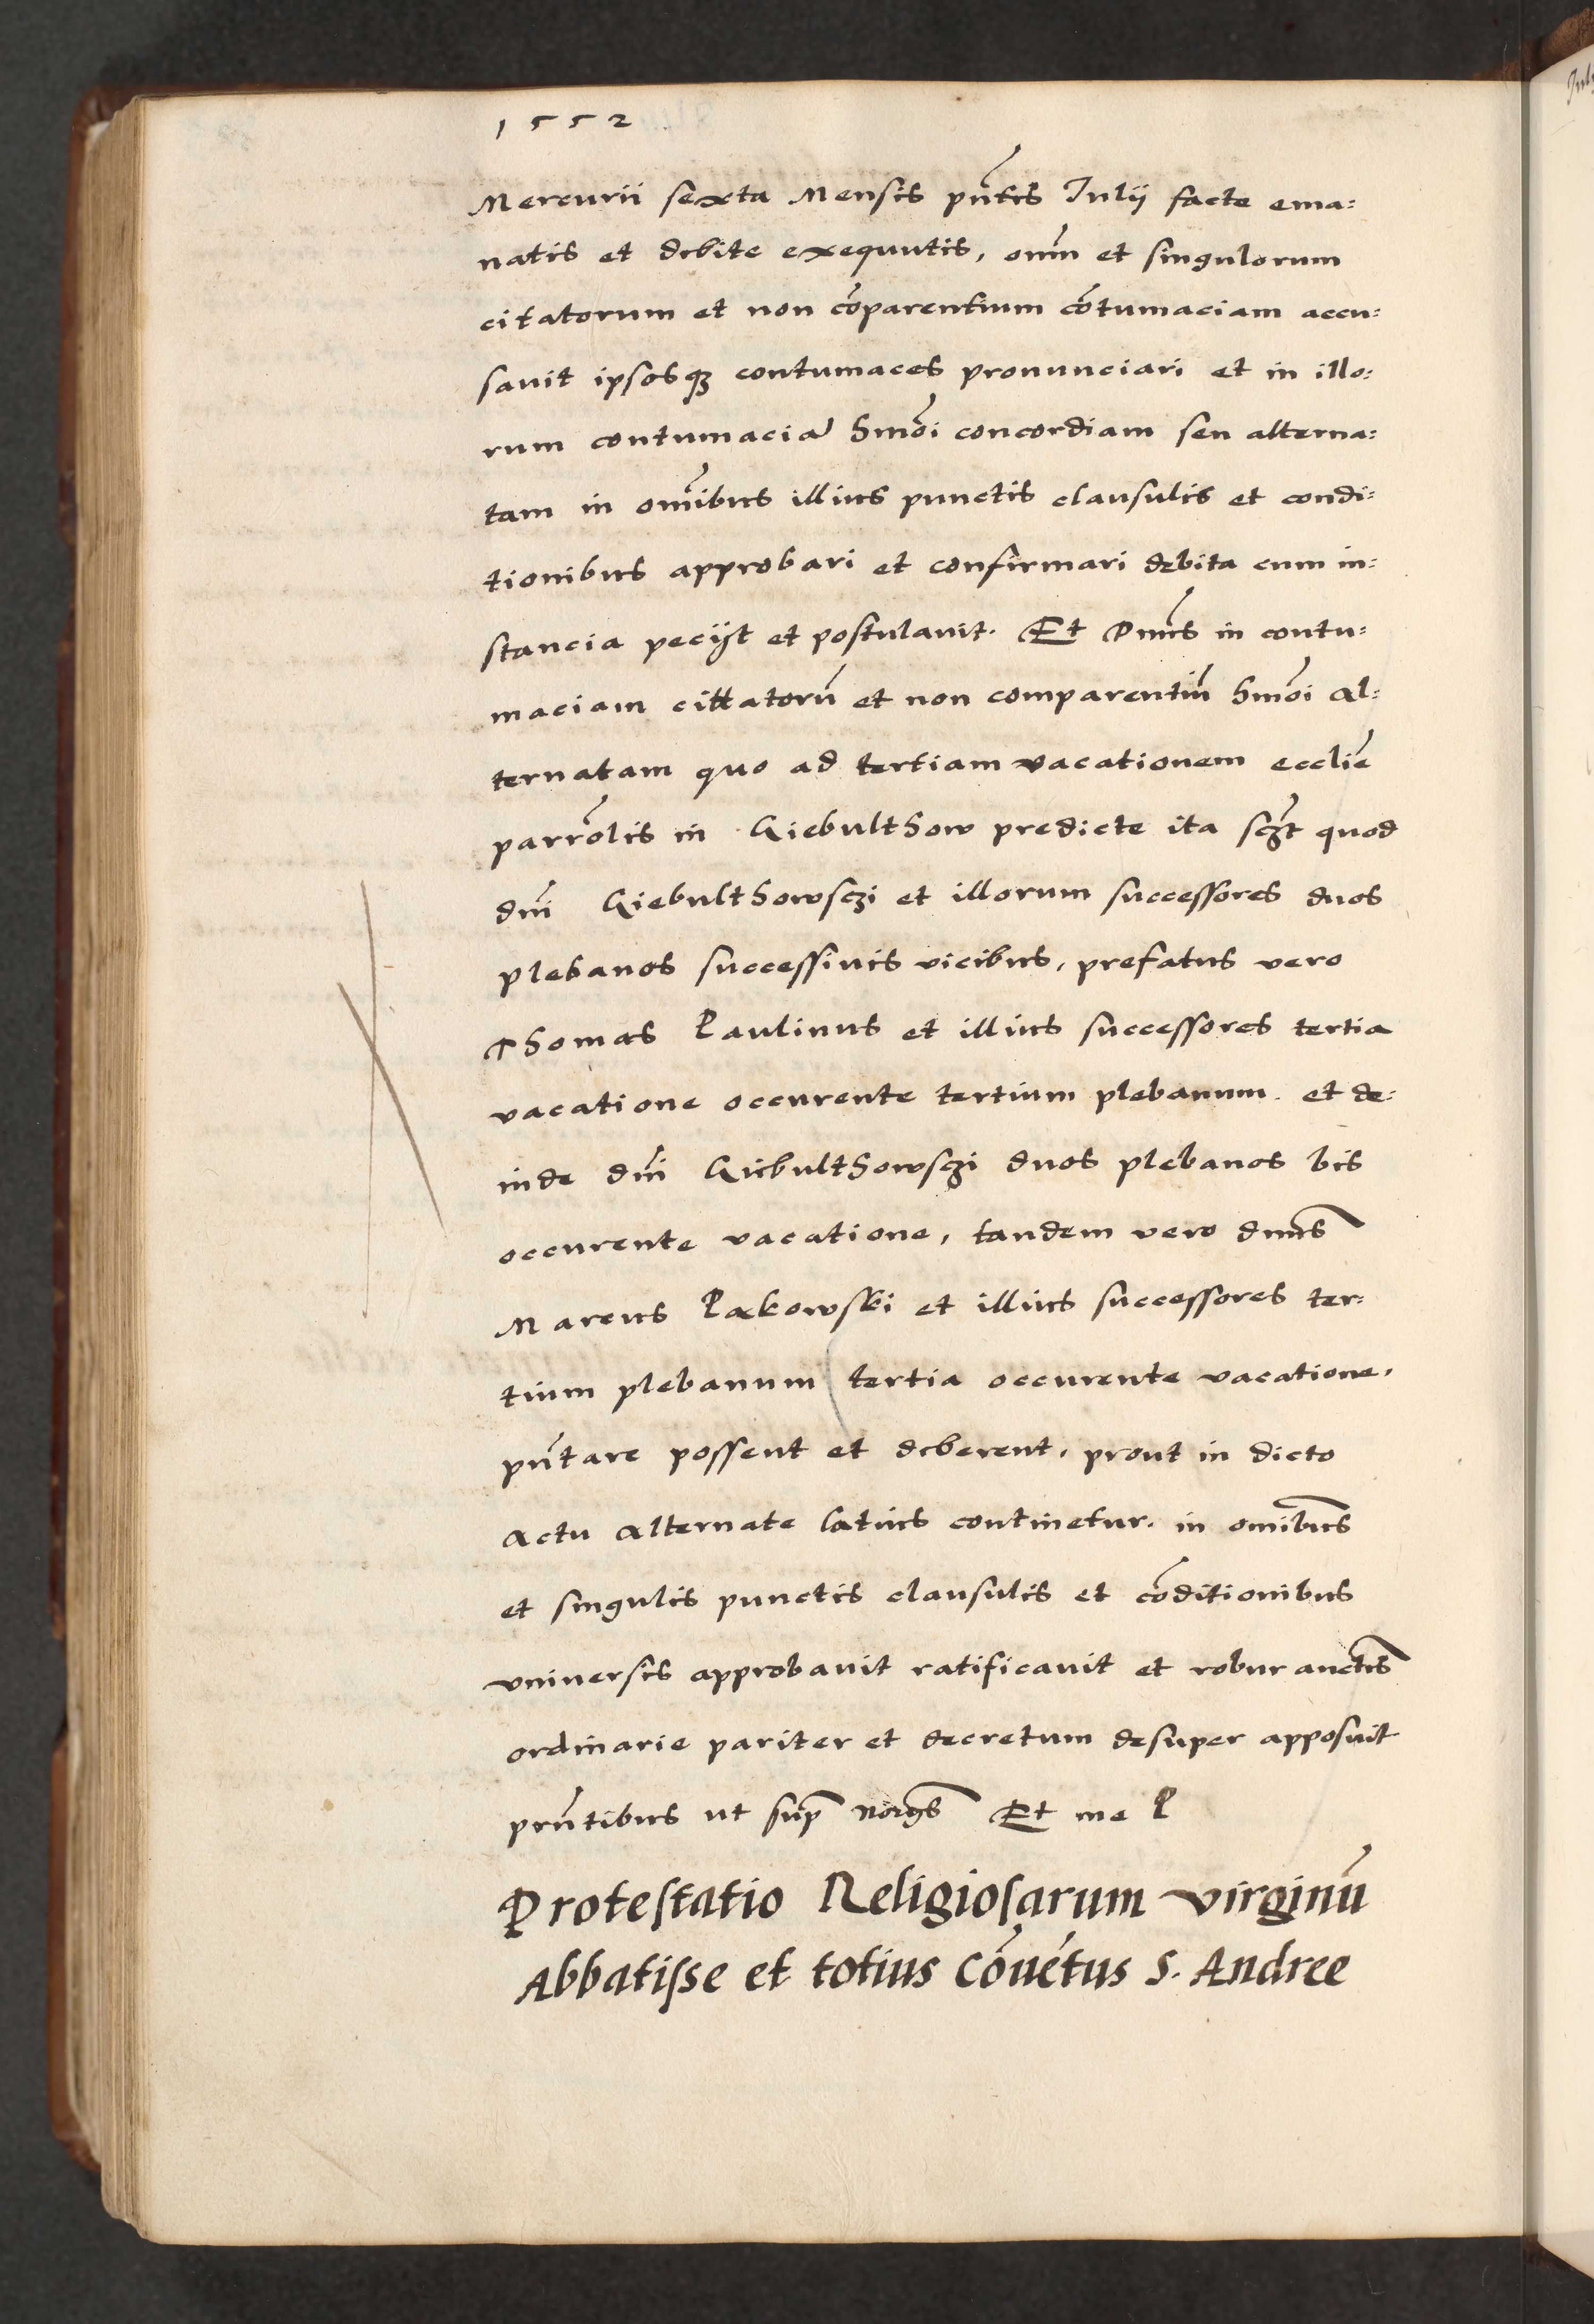 1552
Mercurii sexta Mensis pñtis Julÿ facte ema:
natis et debite exequutis, om̃m et singulorum
citatorum et non cõparentium cõtumaciam accu:
sauit ipsosqꝫ contumaces pronunciari et in illo:
rum contumaciã hmõi concordiam seu alterna:
tam in om̃ibus illius punctis clausulis et condi:
tionibus approbari et confirmari debita cum in:
stancia pecÿt et postulauit. Et Dnus in contu:
maciam cittatorũ et non comparentiũ hmõi Al:
ternatam quo ad tertiam vacationem eccliẽ
parrõlis in Giebulthow predicte ita scꝫt quod
dñi Giebulthowsczi et illorum successores duos
plebanos successiuis vicibus, prefatus vero
Thomas Paulinus et illius successores tertia
vacatione occurente tertium plebanum. et de:
inde dñi Giebulthowsczi duos plebanos bis
occurente vacatione, tandem vero dnus
Marcus Pakowski et illius successores ter:
tium plebanum tertia occurente vacatione,
pñtare possent et deberent, prout in dicto
Actu Alternate latius continetur. in omĩbus
et singulis punctis clausulis et cõditionibus
vniversis approbauit ratificauit et robur auctis
ordinarie pariter et decretum desuper apposuit
prñtibus ut sup̃ Et me P
Protestatio Religiosarum virginũ
Abbatisse et totius Cõuẽtus S. Andree